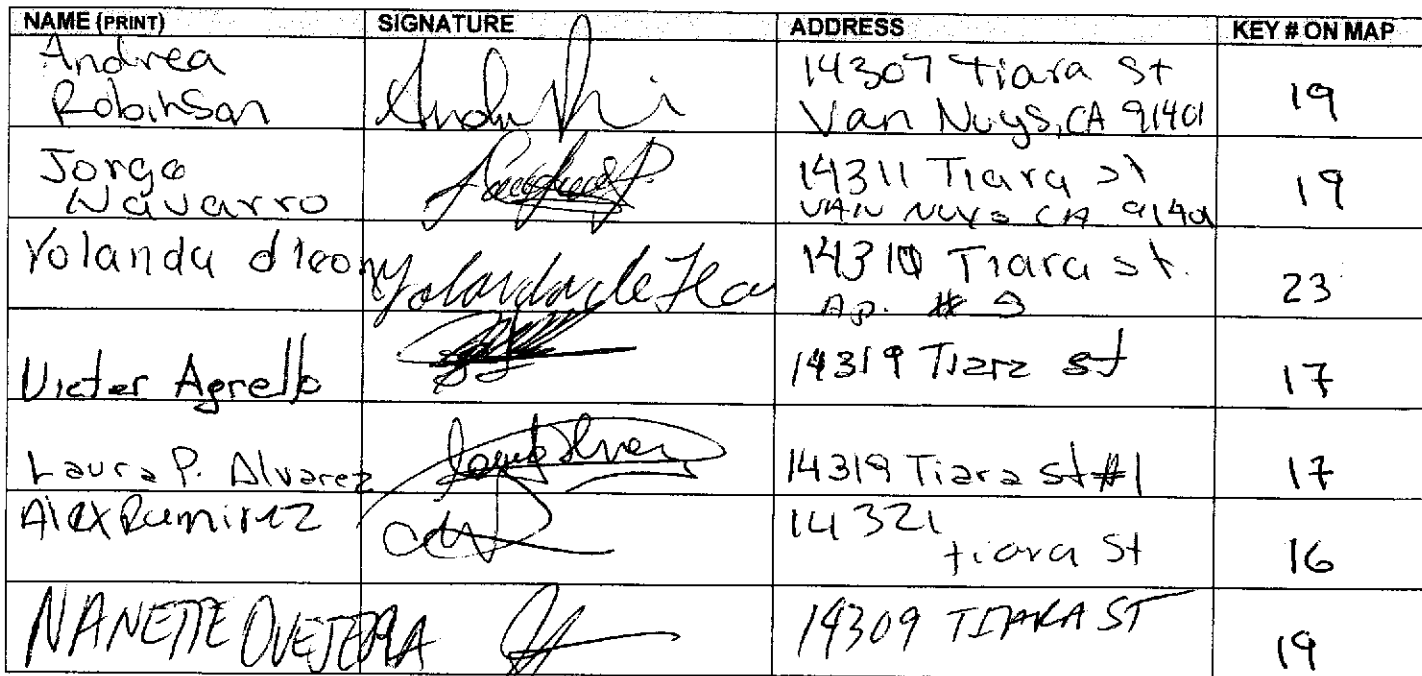 NAME (PRINT) SIGNATURE ADDRESS KEY # ON MAP
Andrea
Robinson
14307 Tiara St
Van Nuys, CA 91401
19
Jorge
Navarro
14311 Tiara st
VAN NUYS CA 91401
19
Yolanda d leon Yolanda de Leon
14310 Tiara st.
Ap. #
23
Victer Agrello 14319 Tiara st 17
Laura P. Alvarez 14319 Tiara st #1 17
Alex Ramirez
14321
tiara St
16
NANETTE OVEJERA 14309 TIARA ST 19